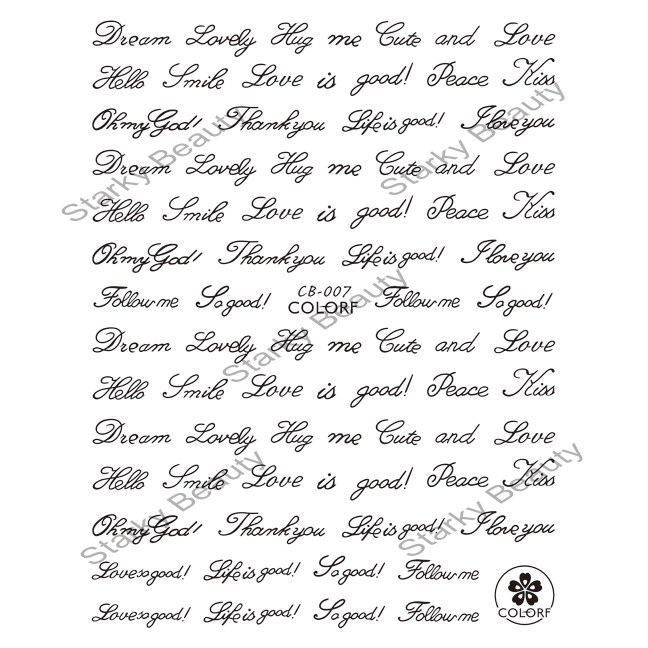 Dream Lovely Hug me Cute and Love
Hello Smile Love is good! Peace Kiss
Oh my God! Thank you Life is good! I love you
Dream Lovely Hug me Cute and Love
Hello Smile Love is good! Peace Kiss
Oh my God! Thank you Life is good! I love you
Follow me So good! CB-007 COLORF Follow me So good!
Dream Lovely Hug me Cute and Love
Hello Smile Love is good! Peace Kiss
Dream Lovely Hug me Cute and Love
Hello Smile Love is good! Peace Kiss
Oh my God! Thank you Life is good! I love you
Love so good! Life is good! So good! Follow me
Love so good! Life is good! So good! Follow me
COLORF
Starky Beauty
Starky Beauty
Starky Beauty
Starky Beauty
Starky Beauty